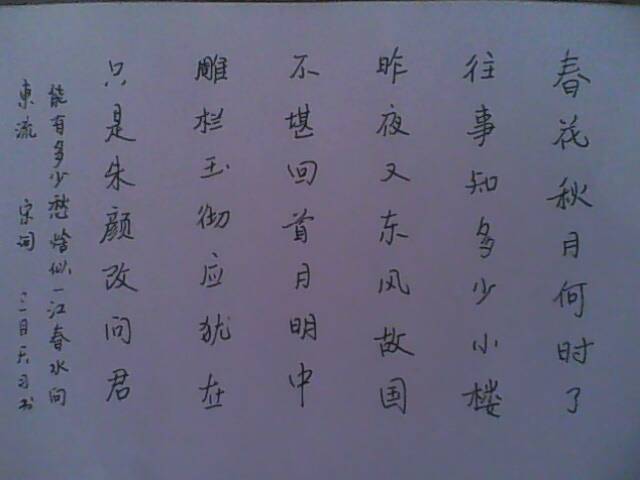 春花秋月何时了
往事知多少小楼
昨夜又东风故国
不堪回首月明中
雕栏玉彻应犹在
只是朱颜改问君
能有多少愁恰似一江春水向
東流 宋词 习书